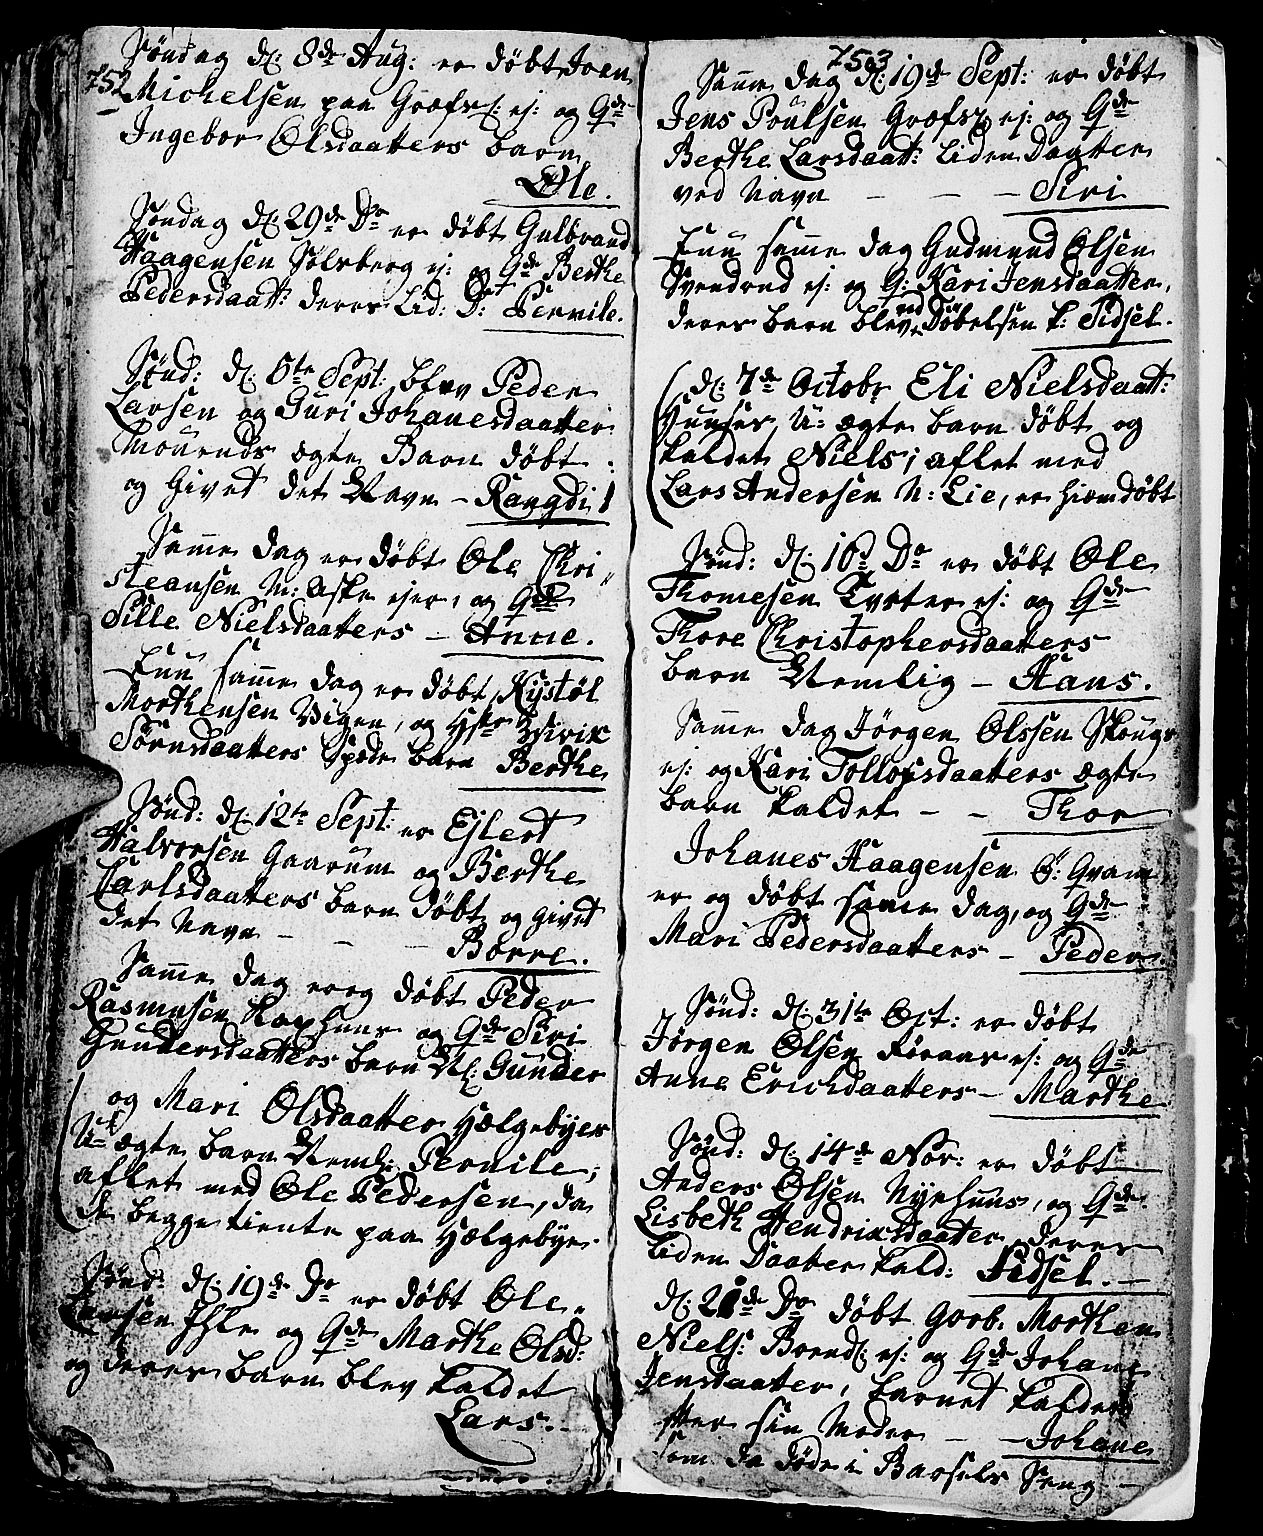 752
Søndag d: 8de Aug: er døbt Joen
Michelsen paa Grofs: ej: og Gde
Ingebor Olsdaatters barn
Ole.
Søndag d: 29de Do er døbt Gulbrand
Haagensen Solsberg ej: og Gde Berthe
Pedersdaatt: deres Lid: D: Pernile.
Sønd: d: 5te Sept: blev Peder
Larsen og Guri Johanesdaatter
Mouruds ægte Barn døbt
og givet det Navn – Rangdi
Samme dag er døbt Ole Chri
steansen N: Aske ejer, og Gde
Sille Nielsdaatters – Anne.
End samme dag er døbt Kystøl
Morthensen Vigen, og Hstr
Sørnsdaatters Spæde barn Berthe
Sønd: d: 12te Sept: er Ejlert
Halvorsen Gaarum og Berthe
Carlsdaatters barn døbt og givet
det Navn – – – Børre.
Samme dag er og døbt Peder
Rasmusen og Gde Siri
Gundersdaatters barn N: Gunder
og Mari Olsdaatter Hælgebyes
U-ægte barn Neml: Pernile,
aflet med Ole Pedersen, da
de begge tiente paa Hælgebye.
Sønd: d: 19de Do er døbt Ole
Larsen Ihle og Gde Marthe Olsd:
og deres barn blev kaldet
Lars.
753
Samme dag d: 19de Sept: er døbt
Jens Poulsen Grofs: ej: og Gde
Berthe Larsdaatt: liden Dagtter
ved Navn – – – Siri
End samme dag Gudmund Olsen
Svendrud ej: og G: Kari Jensdaatter,
deres barn blev ved Døbelsen k: Sidsel.
d: 7de Octobr Eli Nielsdaatt:
Huuses, U: ægte barn døbt og
kaldet Niels; aflet med
Lars Andersen N: Lie, er hiemdøbt
Sønd: d: 10de Do er døbt Ole
Thomesen ej: og Gde
Thore Christophersdaatters
barn Nemlig – Hans.
Samme dag Jørgen Olssen Skougs
ej: og Kari Tollofsdaatters ægte
barn kaldet – – Thor
Johanes Haagensen Ø: Qvam
er og døbt same dag, og Gde
Mari Pedersdaatters – Peder.
Sønd: d: 31te Oct: er døbt
Jørgen Olsen ej: og Gde
Anne Erichdaatters – Marthe
Sønd: d: 14de Nov: er døbt
Anders Olsen Nyehuus, og Gde
Lisbeth Hendrixdaatter, deres
liden Daatter kald: Sidsel. –
d: 21de Do døbt Gorb. Morthen
Niels: ej: og Gde Johane
Jensdaatter, barnet kaldet
efter sin Moder – – Johane
som da døde i Barsels Seng –